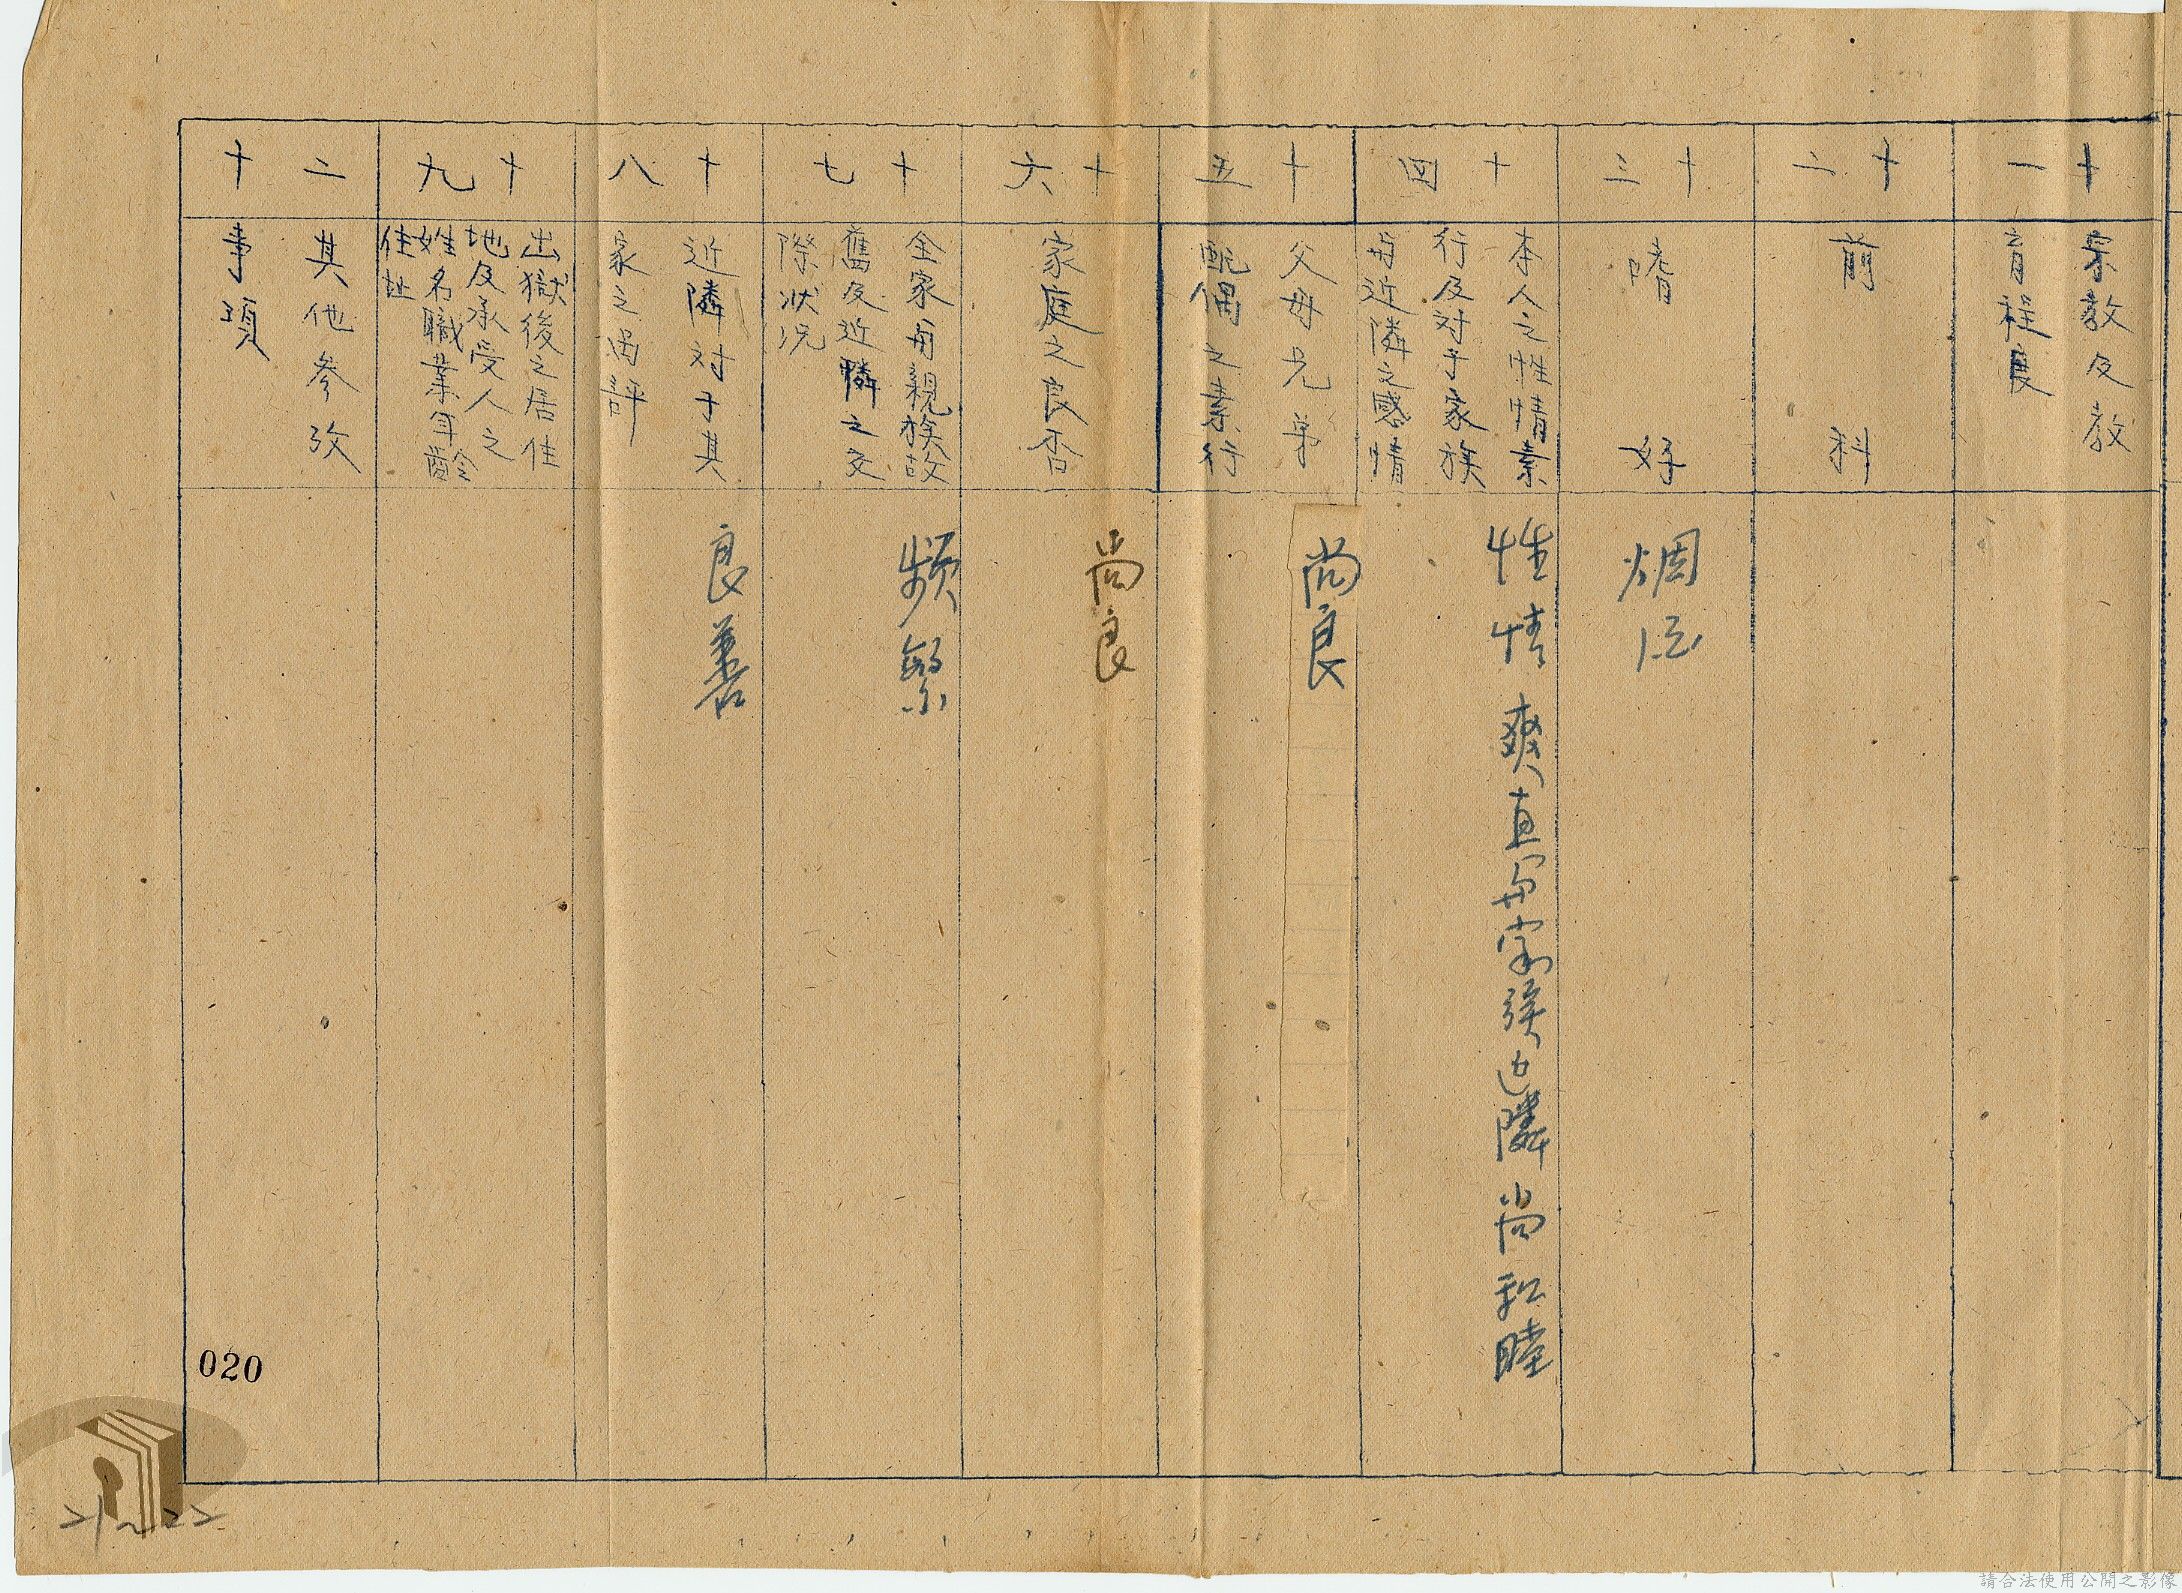 十一
宗教及教
育程度
十二
前科
十三
嗜好
烟酒
十四
本人之性情素
行及対于家族
與近隣之感情
性情爽直與家族近隣尚和睦
十五
父母兄弟
配偶之素行
尚良
十六
家庭之良否
尚良
十七
全家與親族故
舊及近憐之交
際状况
頻繁
十八
近隣対于其
家之
評
良善
十九
出獄後之居住
地及承受人之
姓名職業年齢
住址
二十
其他參攷
事項
020
21~22
請合法使用公開之影像